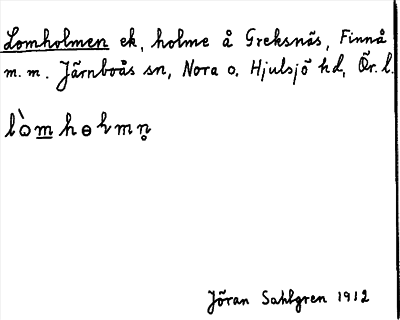 Lomholmen ek, holme å Greksnäs, Finnå
m. m. Järnboås sn, Nora o. Hjulsjö hd, Ör. l.
lò̵m hɵlmn̥
Jöran Sahlgren 1912